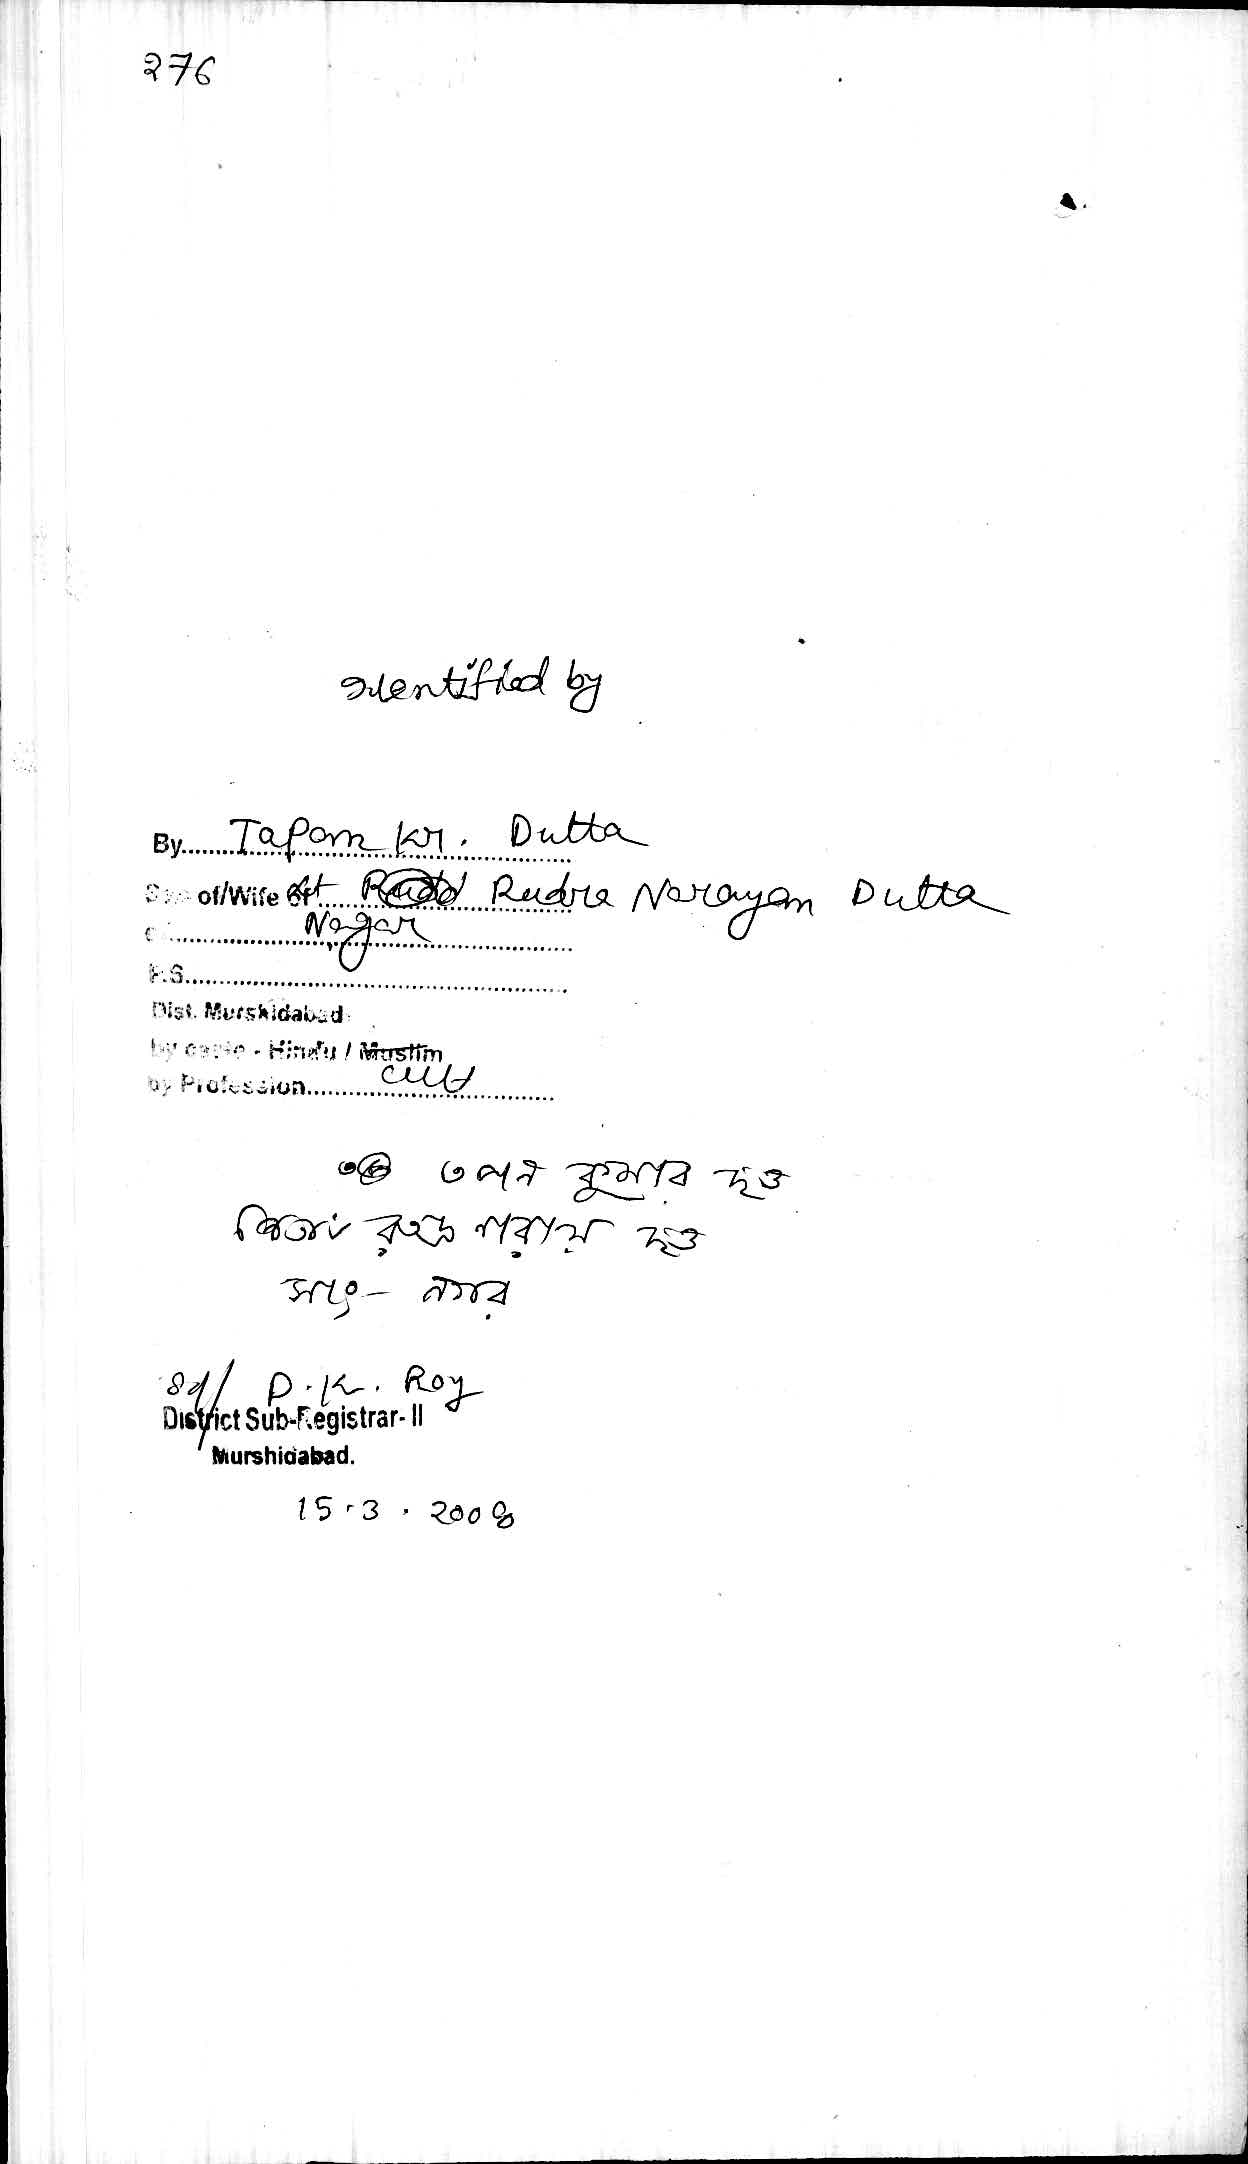 276
Identified by
By........Tapan Kr. Dutta
Son of/Wife of Lt Rudra Narayan Dutta
Nagar
P.S.
Dist. Murshidabad
by caste - Hindu / Muslim
by Profession
তপন কুমার দত্ত
পিতা রুদ্র নারায়ন দত্ত
সাং- নগর
Sd/ D.K. Roy
District Sub-Registrar-II
Murshidabad.
15.3.2008